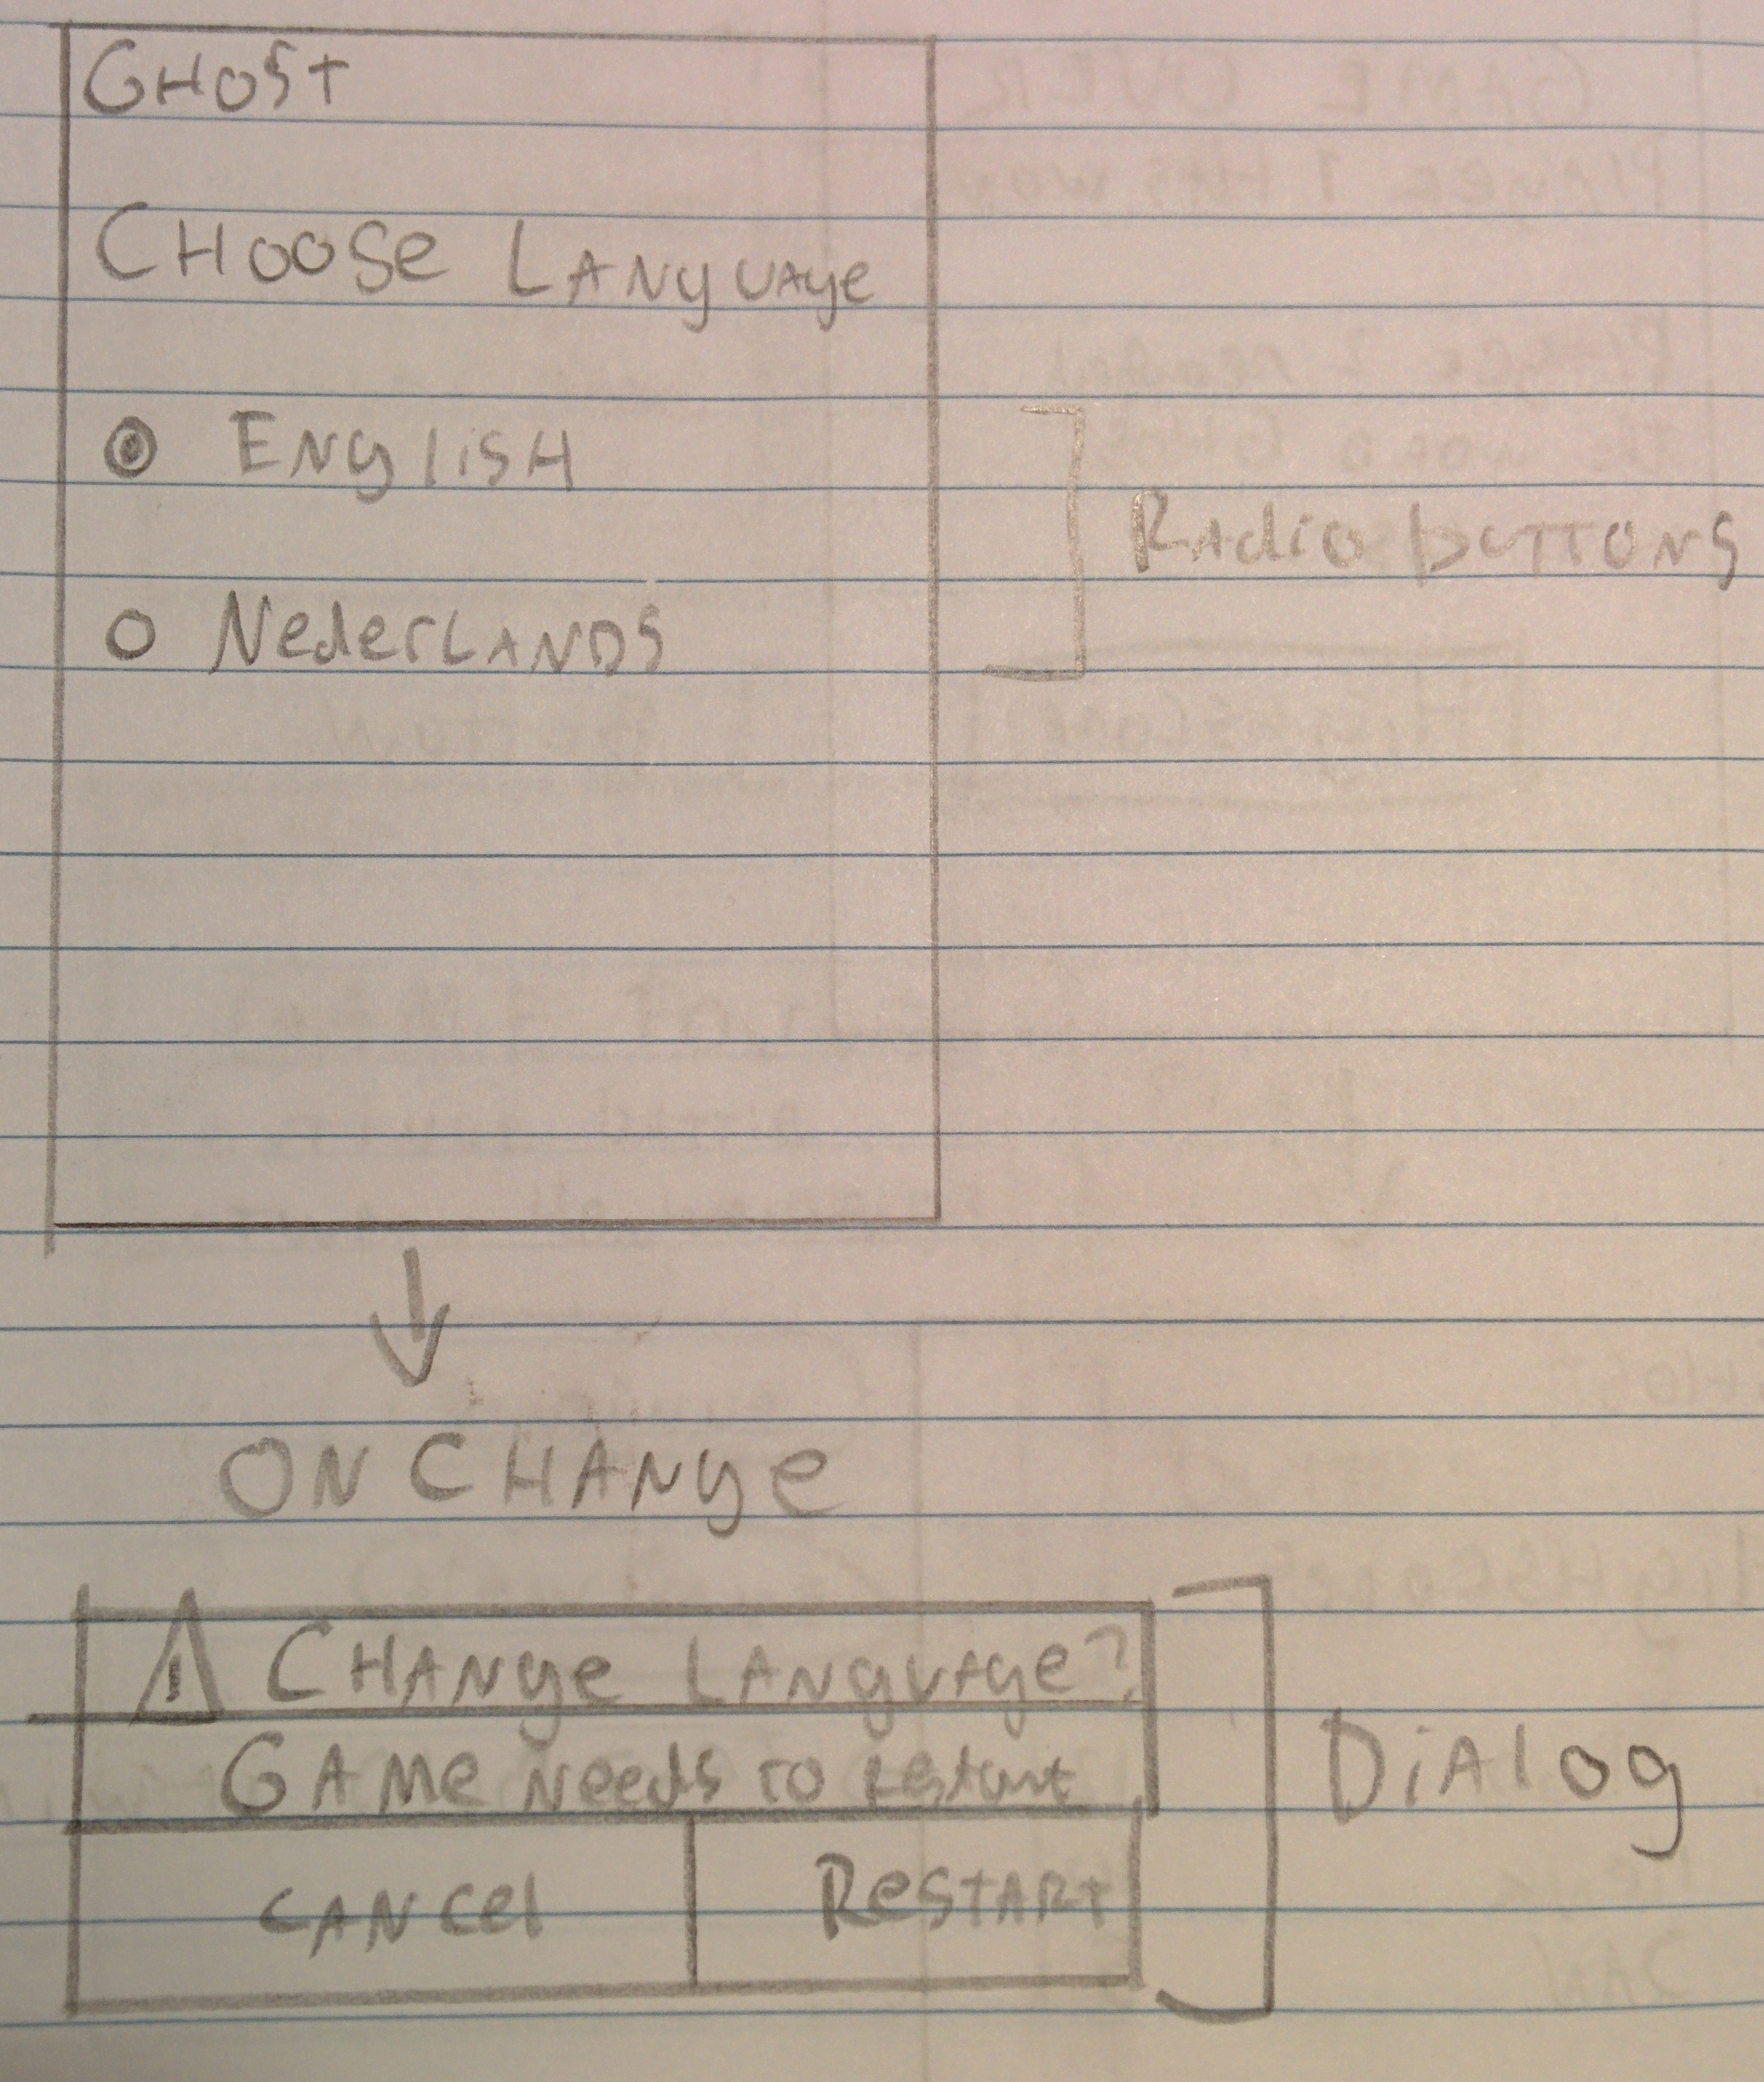 GHOST
CHOOSe LANguAge
ENgliSH
NederLANDS
RAdio buTTONS
ON CHANge
! CHANge LANguAge?
GAMe Needs TO restart
CANCel
ReSTART
DiAlog